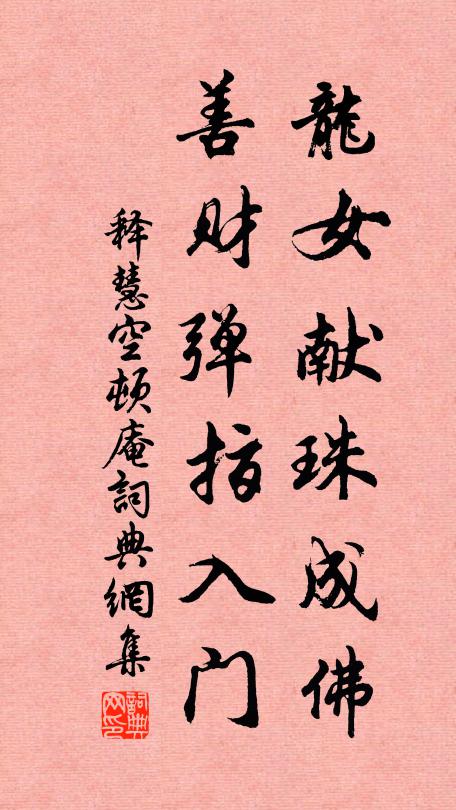 龍女献珠成佛
善财弹指入门
释慧空顿庵詞典網集
詞典网印